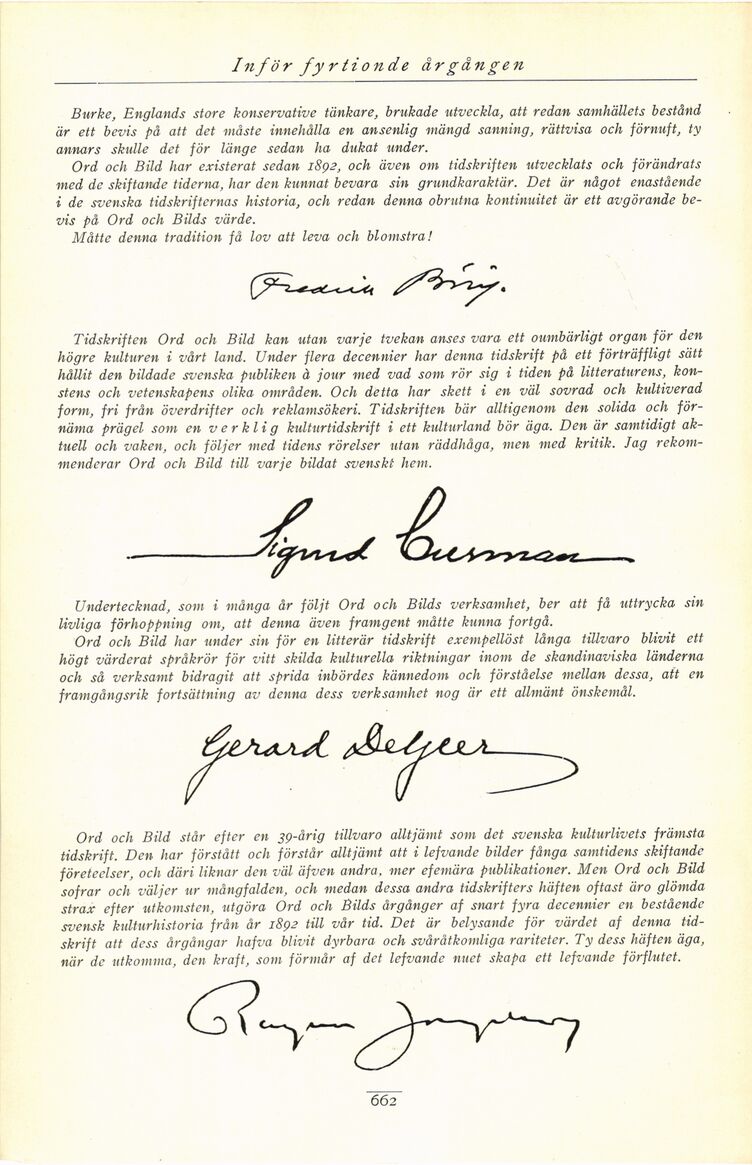 Inför fyrtionde årgången
Burke, Englands store konservative tänkare, brukade utveckla, att redan samhällets bestånd
är ett bevis på att det måste innehålla en ansenlig mängd sanning, rättvisa och förnuft, ty
annars skulle det för länge sedan ha dukat under.
Ord och Bild har existerat sedan 1892, och även om tidskriften utvecklats och förändrats
med de skiftande tiderna, har den kunnat bevara sin grundkaraktär. Det är något enastående
i de svenska tidskrifternas historia, och redan denna obrutna kontinuitet är ett avgörande be-
vis på Ord och Bilds värde.
Måtte denna tradition få lov att leva och blomstra!
Fredrik Böök.
Tidskriften Ord och Bild kan utan varje tvekan anses vara ett oumbärligt organ för den
högre kulturen i vårt land. Under flera decennier har denna tidskrift på ett förträffligt sätt
hållit den bildade svenska publiken à jour med vad som rör sig i tiden på litteraturens, kon-
stens och vetenskapens olika områden. Och detta har skett i en väl sovrad och kultiverad
form, fri från överdrifter och reklamsökeri. Tidskriften bär alltigenom den solida och för-
näma prägel som en verklig kulturtidskrift i ett kulturland bör äga. Den är samtidigt ak-
tuell och vaken, och följer med tidens rörelser utan räddhåga, men med kritik. Jag rekom-
menderar Ord och Bild till varje bildat svenskt hem.
Sigurd Curman
Undertecknad, som i många år följt Ord och Bilds verksamhet, ber att få uttrycka sin
livliga förhoppning om, att denna även framgent måtte kunna fortgå.
Ord och Bild har under sin för en litterär tidskrift exempellöst långa tillvaro blivit ett
högt värderat språkrör för vitt skilda kulturella riktningar inom de skandinaviska länderna
och så verksamt bidragit att sprida inbördes kännedom och förståelse mellan dessa, att en
framgångsrik fortsättning av denna dess verksamhet nog är ett allmänt önskemål.
Gerard De Geer
Ord och Bild står efter en 39-årig tillvaro alltjämt som det svenska kulturlivets främsta
tidskrift. Den har förstått och förstår alltjämt att i lefvande bilder fånga samtidens skiftande
företeelser, och däri liknar den väl äfven andra, mer efemära publikationer. Men Ord och Bild
sofrar och väljer ur mångfalden, och medan dessa andra tidskrifters häften oftast äro glömda
strax efter utkomsten, utgöra Ord och Bilds årgånger af snart fyra decennier en bestående
svensk kulturhistoria från år 1892 till vår tid. Det är belysande för värdet af denna tid-
skrift att dess årgångar hafva blivit dyrbara och svåråtkomliga rariteter. Ty dess häften äga,
när de utkomma, den kraft, som förmår af det lefvande nuet skapa ett lefvande förflutet.
662